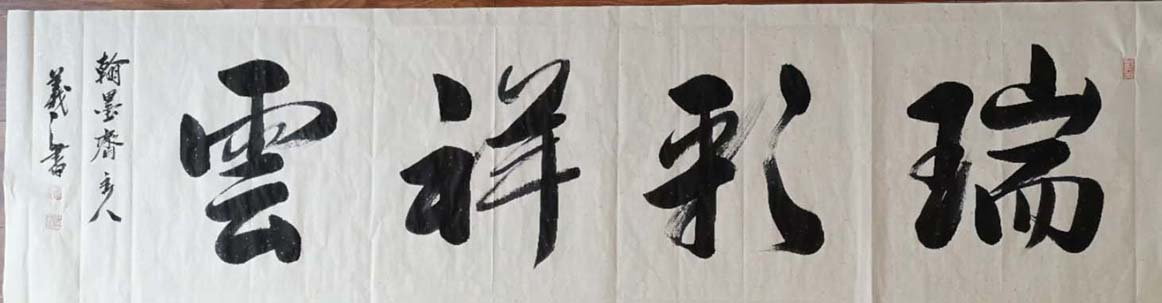 瑞彩祥雲
翰墨齋主人
義書